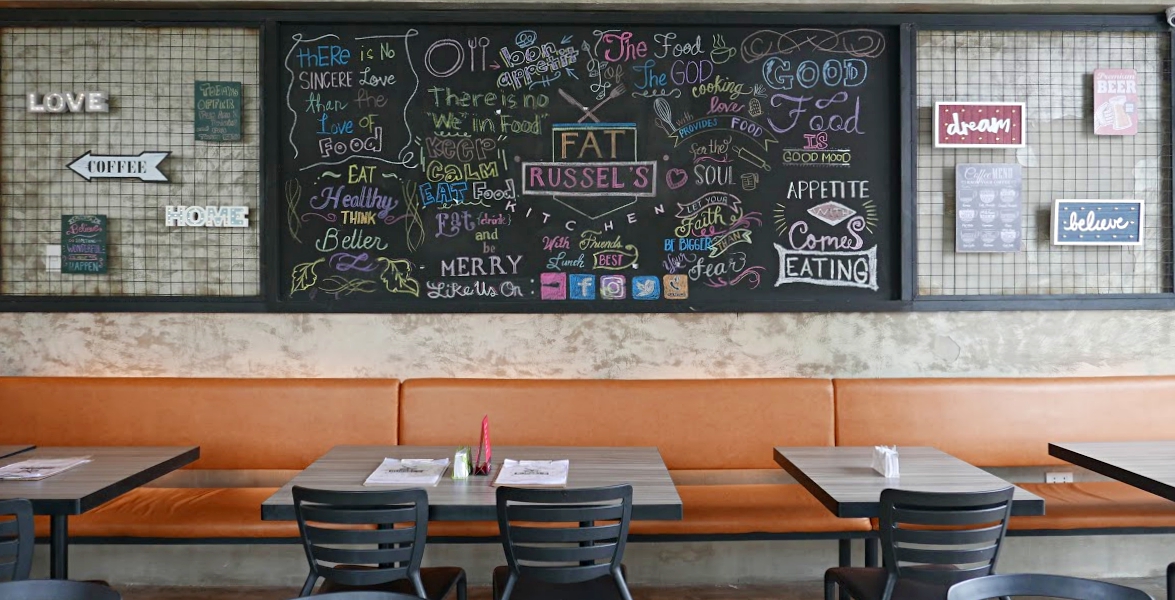 LOVE
COFFEE
HOME
BELIEVE
SOMETHING
WONDERFUL
HAPPEN
thERE is No
SINCERE Love
than the
Love OF
Food
EAT
Healthy
THINK
Better
bon
appetit
There is no
"We" in Food"
KEEP
CALM
EAT Food
Eat (drink)
and
be
MERRY
Like Us On:
FAT
RUSSEL'S
KITCHEN
With Friends
Lunch BEST
The Food
of
The GOD
cooking
love
with
PROVIDES FOOD
for the
SOUL
LET YOUR
Faith
BE BIGGER THAN
Your
Fear
GOOD
Food
IS
GOOD MOOD
APPETITE
WITH
COMES
EATING
dream
Premium
BEER
Coffee MENU
believe